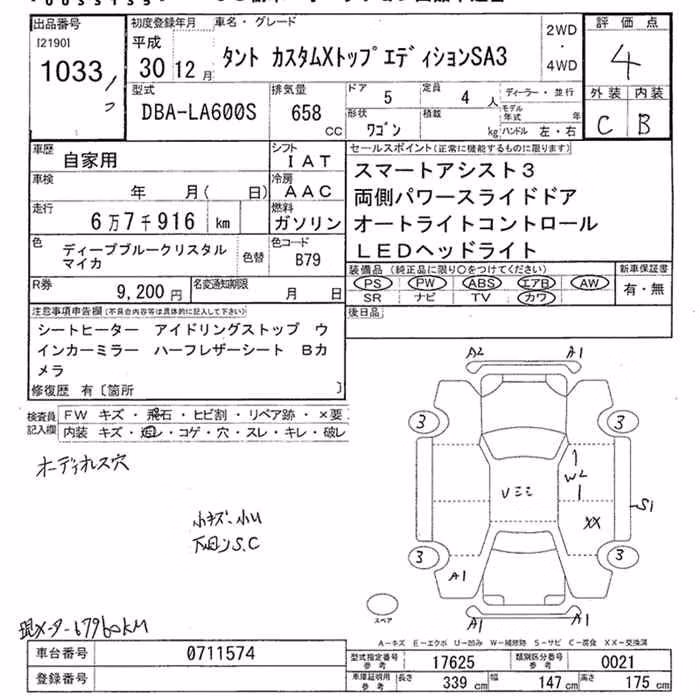 出品番号
初度登録年月 車名・グレード
評価点
I21901
1033
平成
30 12月
タント カスタムXトップエディションSA3
2WD
・
4WD
4
型式
DBA-LA600S
排気量
658
CC
ドア
5
定員
4 人
ディーラー・並行
モデル年式 年
形状
ワゴン
積載
kg
ハンドル 左・右
外装 内装
C B
車歴
自家用
シフト
IAT
車検
年 月( 日)
冷房
AAC
走行
6万7千916 km
燃料
ガソリン
色
ディープブルークリスタル
マイカ
色替
色コード
B79
R券
9,200円
名変通知期限
月 日
セールスポイント(正常に機能するものに限ります)
スマートアシスト3
両側パワースライドドア
オートライトコントロール
LEDヘッドライト
装備品(純正品に限り○をつけてください)
新車保証書
PS PW ABS エアB AW
有・無
SR ナビ TV カワ
後日品
注意事項申告欄(不具合内容等は具体的に記入して下さい)
シートヒーター アイドリングストップ ウ
インカーミラー ハーフレザーシート Bカ
メラ
修復歴 有〔箇所 〕
検査員
記入欄
FW キズ・飛石・ヒビ割・リペア跡・×要
内装 キズ・凹レ・コゲ・穴・スレ・キレ・破レ
オーディオレス穴
小キズ・小U
下回りS.C
A2 A1
3 3
W2
S1
XX
3 3
A1
A1 A1
スペア
現メーター67960KM
A-キズ E-エクボ U-凹み W-補修跡 S-サビ C-腐食 XX-交換済
車台番号 0711574
型式指定番号
参考 17625
類別区分番号
参考 0021
登録番号
車庫証明用
参考
長さ 339 cm 幅 147 cm 高さ 175 cm